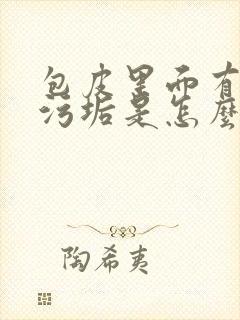 包皮里面有
污垢是怎麼
陶希夷